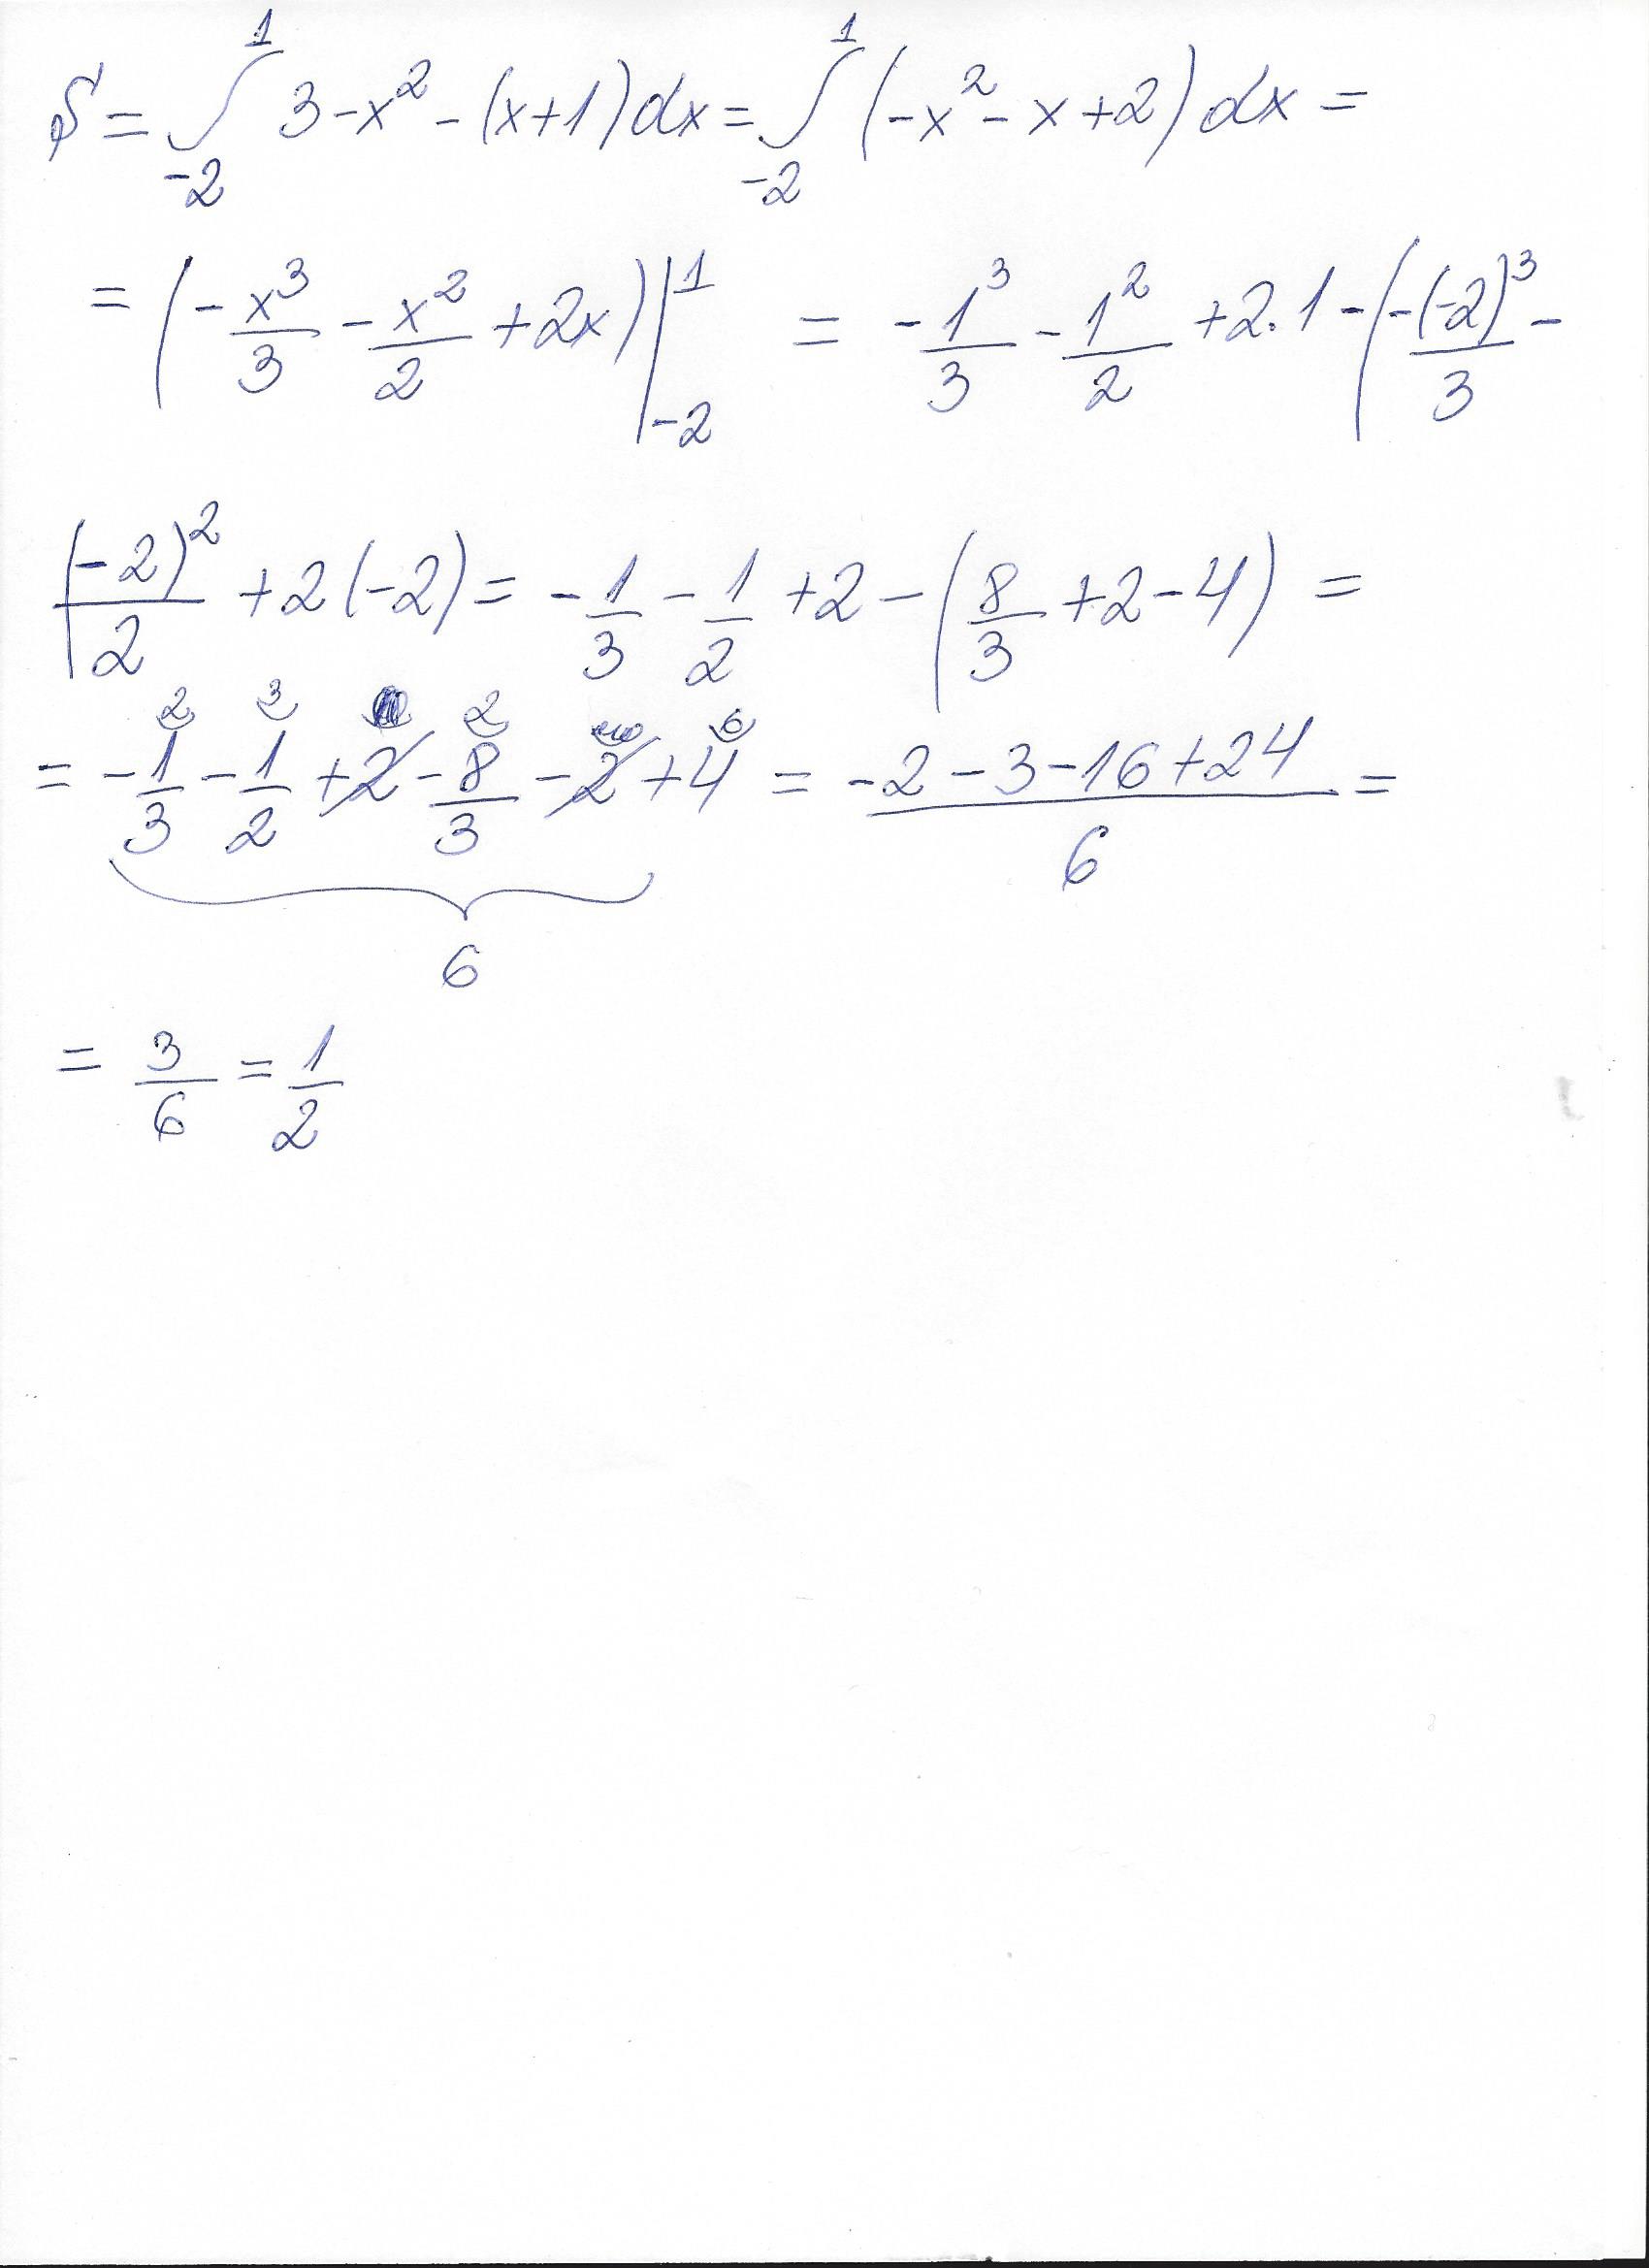 S = ∫_{-2}^{1} 3 - x² - (x+1) dx = ∫_{-2}^{1} (-x² - x + 2) dx =
= (-x³/3 - x²/2 + 2x) |_{-2}^{1} = -1³/3 - 1²/2 + 2·1 - (-(-2)³/3 -
(-2)²/2 + 2(-2) = -1/3 - 1/2 + 2 - (8/3 + 2 - 4) =
2 3 2 6
= -1/3 - 1/2 + 2 - 8/3 - 2 + 4 = (-2 - 3 - 16 + 24)/6 =
6
= 3/6 = 1/2